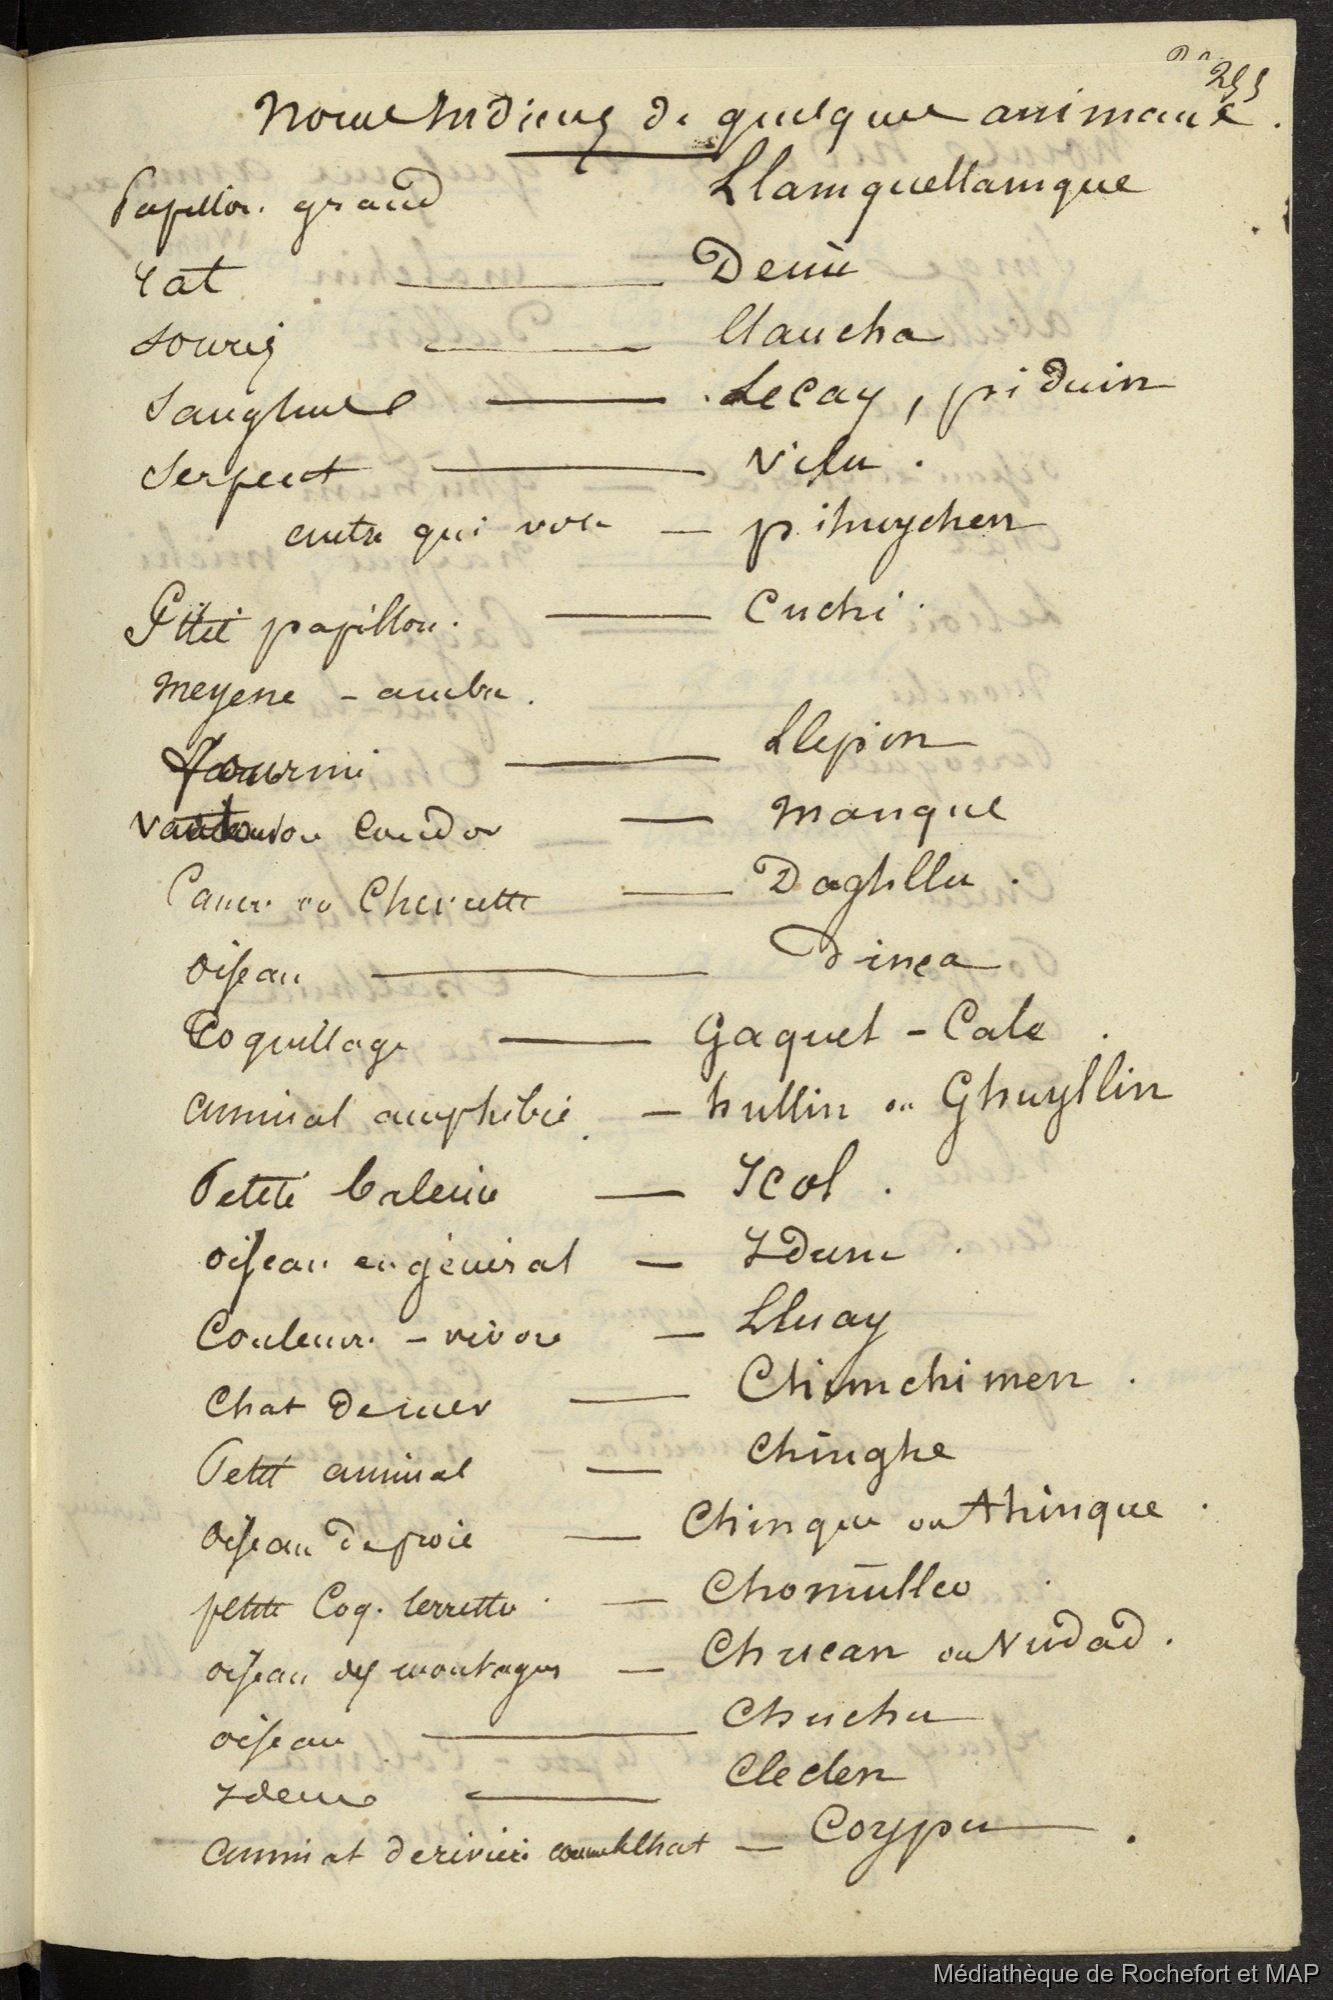 255
Noms Indiens de quelques animaux.
Papillon grand Llamquellamque
rat — Deüü
souris — llaucha
sanghues — Lecay, piduin
serpent — vilu.
autre qui vole — pihuychen
Ptit papillon. — Cuchi.
meyene - ambre.
fourmi — Llepin
Condor — manque
Cancre ou Chevrette — Daghllu.
oiseau — dinca
Coquillage — Gaquel - Cale.
animal amphibie. — hullin ou Ghuyllin
Petite baleine — Icol.
oiseau en général — Ydum.
Couleuvre - vivore — Lluay
Chat de mer — Chimchimen.
Petit animal — Chinghe
Oiseau de proie — Chinque ou thinque.
petite Coq. terrestre. — Chomüllco.
oiseau des montagnes — Chucan ou Nudad.
oiseau — Chuchu
Idem — Cleclen
animal de riviere comme Chat — Coypu.
Médiathèque de Rochefort et MAP